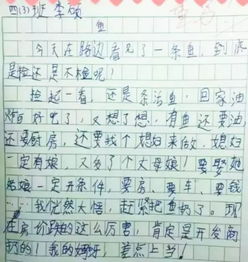 四(3)班 李硕
鱼
今天在路边看见了一条鱼，到底
是捡还是不捡呢！
捡起一看，还是条活鱼，回家油
炸可好吃了，又想了想，有鱼还要油
还要厨房，还要找个媳妇来做，媳妇
一定有娘，又多了个丈母娘！要娶她
老娘一定开条件，要房、要车、要钱
我恍然大悟，赶紧把鱼扔了。现
在房价跌的这么厉害，肯定是开发商
扔的！我的妈呀，差点上当！